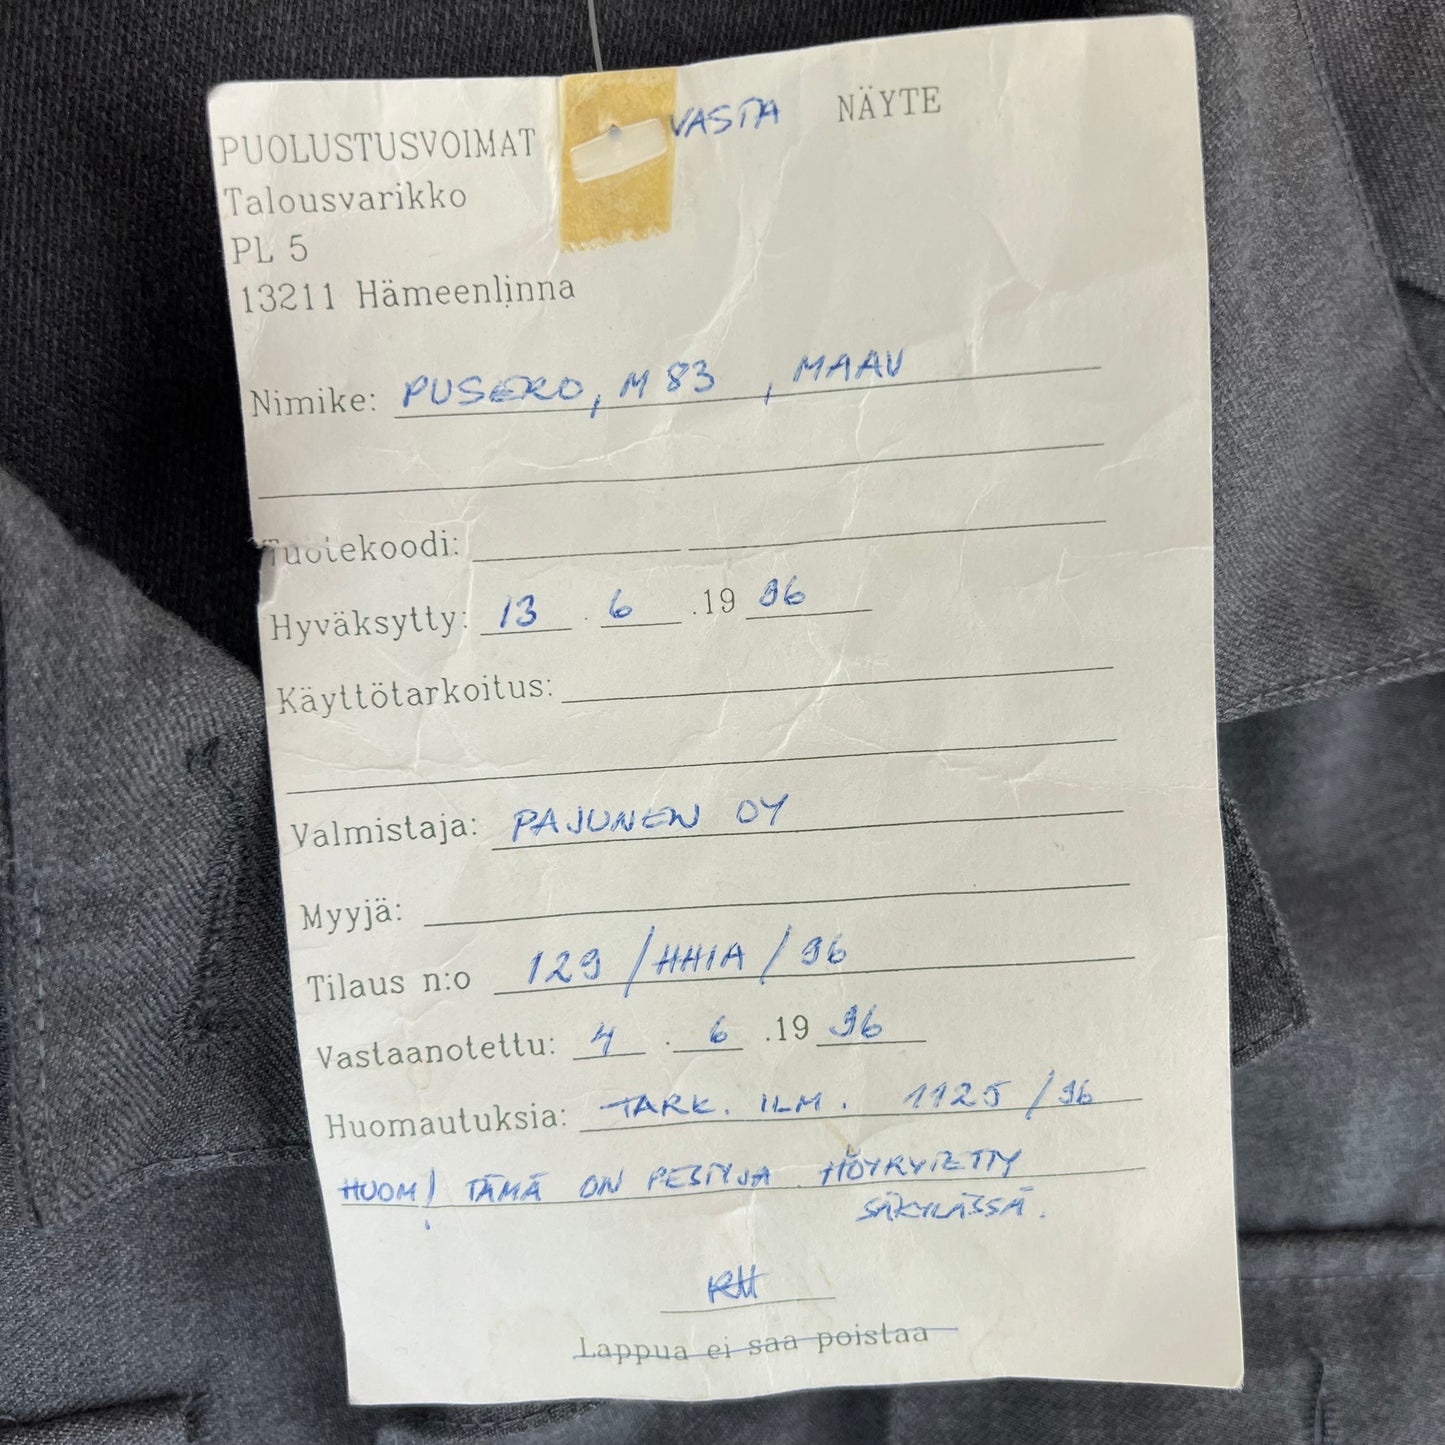 VASTA NÄYTE
PUOLUSTUSVOIMAT
Talousvarikko
PL 5
13211 Hämeenlinna
Nimike: PUSERO, M 83 , MAAV
Tuotekoodi:
Hyväksytty: 13 . 6 .19 96
Käyttötarkoitus:
Valmistaja: PAJUNEN OY
Myyjä:
Tilaus n:o 129 / HHIA / 96
Vastaanotettu: 4 . 6 .19 96
Huomautuksia: TARK. ILM. 1125 / 96
HUOM! TÄMÄ ON PESTY JA HÖYRYTETTY
SÄKYLÄSSÄ.
Lappua ei saa poistaa